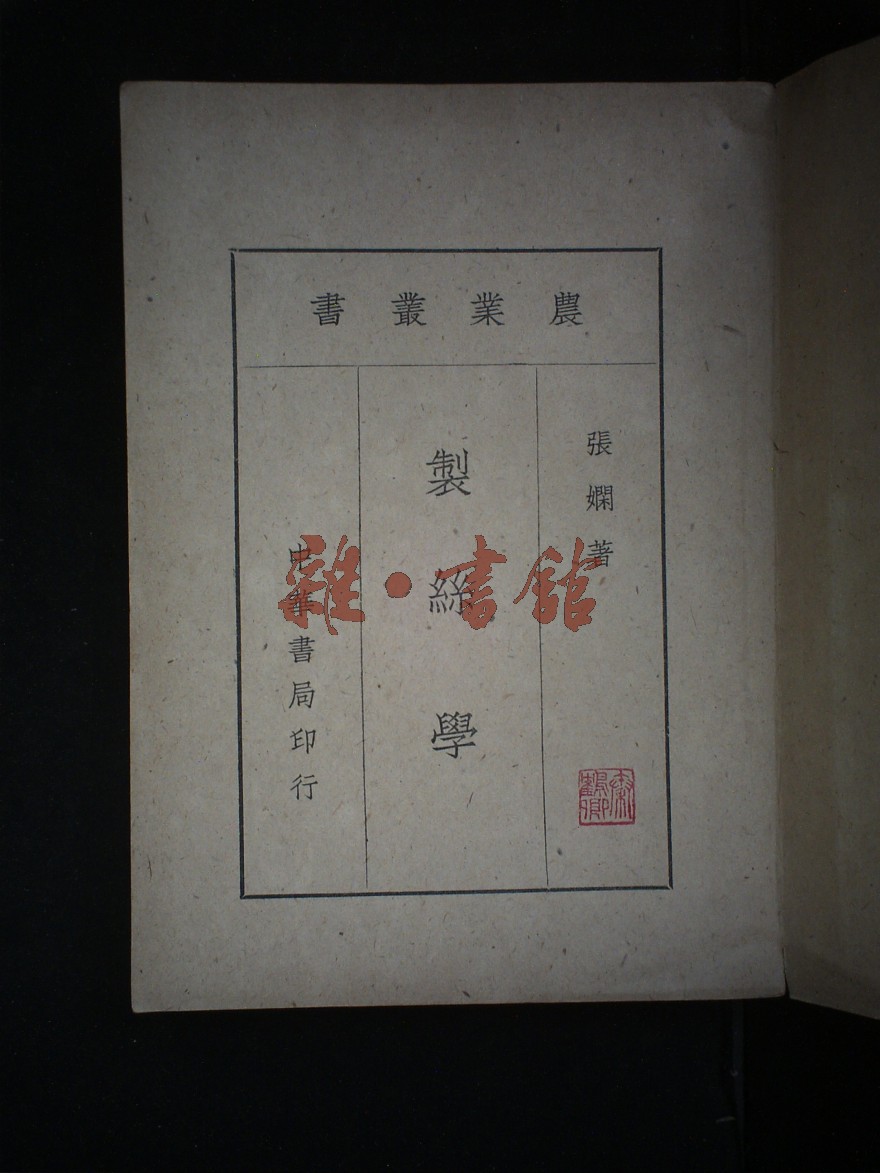 農業叢書
張嫻著
製絲學
中華書局印行
雜·書館